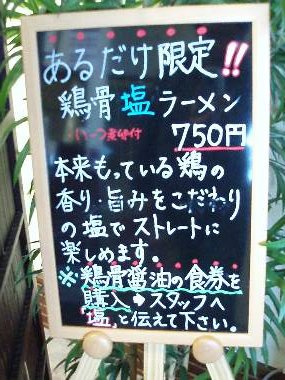 あるだけ限定!!
鶏骨塩ラーメン
750円
本来もっている鶏の
香り・旨みをこだわり
の塩でストレートに
楽しめます。
※鶏骨醤油の食券を
購入➡スタッフへ
「塩」と伝えて下さい。